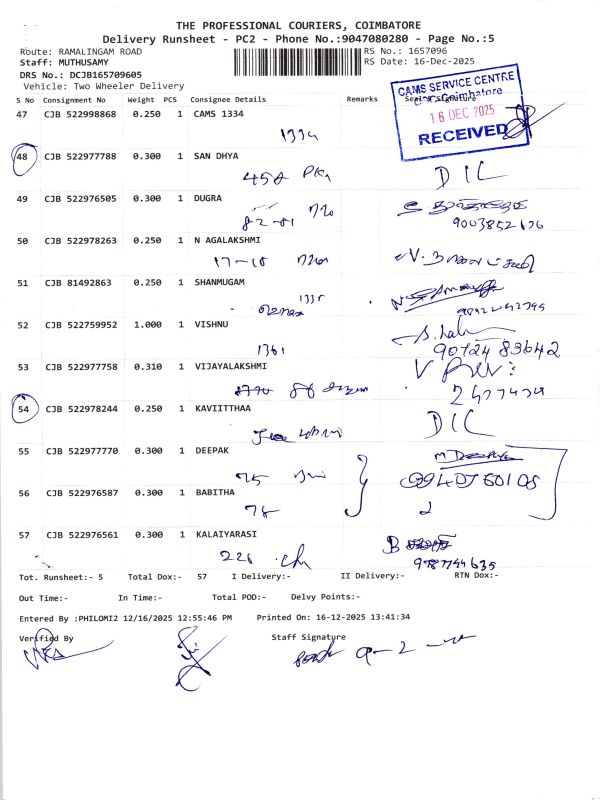 THE PROFESSIONAL COURIERS, COIMBATORE
Delivery Runsheet - PC2 - Phone No.:9047080280 - Page No.:5
Route: RAMALINGAM ROAD
RS No.: 1657096
Staff: MUTHUSAMY
RS Date: 16-Dec-2025
DRS No.: DCJB165709605
Vehicle: Two Wheeler Delivery
CAMS SERVICE CENTRE
Coimbatore
16 DEC 2025
RECEIVED
S No Consignment No Weight PCS Consignee Details Remarks
47 CJB 522998868 0.250 1 CAMS 1334
1334
48 CJB 522977788 0.300 1 SAN DHYA
458 DIL
49 CJB 522976505 0.300 1 DUGRA
82-81
50 CJB 522978263 0.250 1 N AGALAKSHMI
17-18
51 CJB 81492863 0.250 1 SHANMUGAM
1335
52 CJB 522759952 1.000 1 VISHNU
1361
90424 83642
53 CJB 522977758 0.310 1 VIJAYALAKSHMI
86
54 CJB 522978244 0.250 1 KAVIITTHAA
DIL
55 CJB 522977770 0.300 1 DEEPAK
75
56 CJB 522976587 0.300 1 BABITHA
76
57 CJB 522976561 0.300 1 KALAIYARASI
226
Tot. Runsheet:- 5 Total Dox:- 57 I Delivery:- II Delivery:- RTN Dox:-
Out Time:- In Time:- Total POD:- Delvy Points:-
Entered By :PHILOMI2 12/16/2025 12:55:46 PM Printed On: 16-12-2025 13:41:34
Verified By Staff Signature